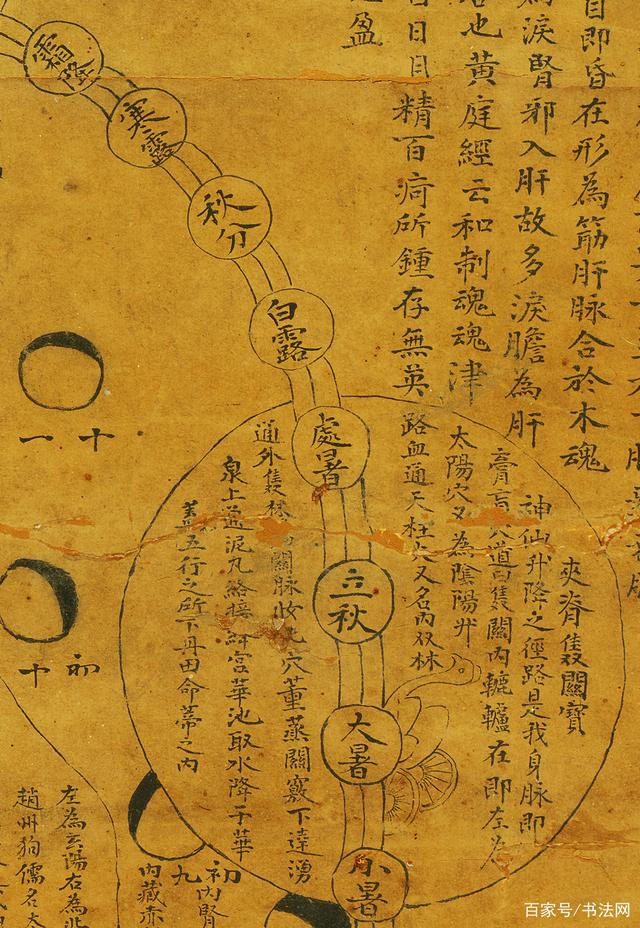 自即昏在形為筋肝脉合於木魂
為淚腎邪入肝故多淚膽為肝
也黃庭經云和制魂魂津
目精百痾所鍾存無英
盈
霜降
寒露
秋分
白露
處暑
立秋
大暑
小暑
夾脊雙關寶
神仙升降之徑路是我身脉即
膏肓穴道曰雙關內轆轤在即左為
太陽穴又為陰陽井
路血通天柱穴又名內双林
通外雙林關脉穴薰蒸關竅下達湧
泉上通泥丸絡接絳宮華池取水降于華
蓋五行之所下丹田命蒂之內
十一
初十
初九
內腎
內藏赤
左為玄陽右為北
趙州狗儒名太
百家号/书法网